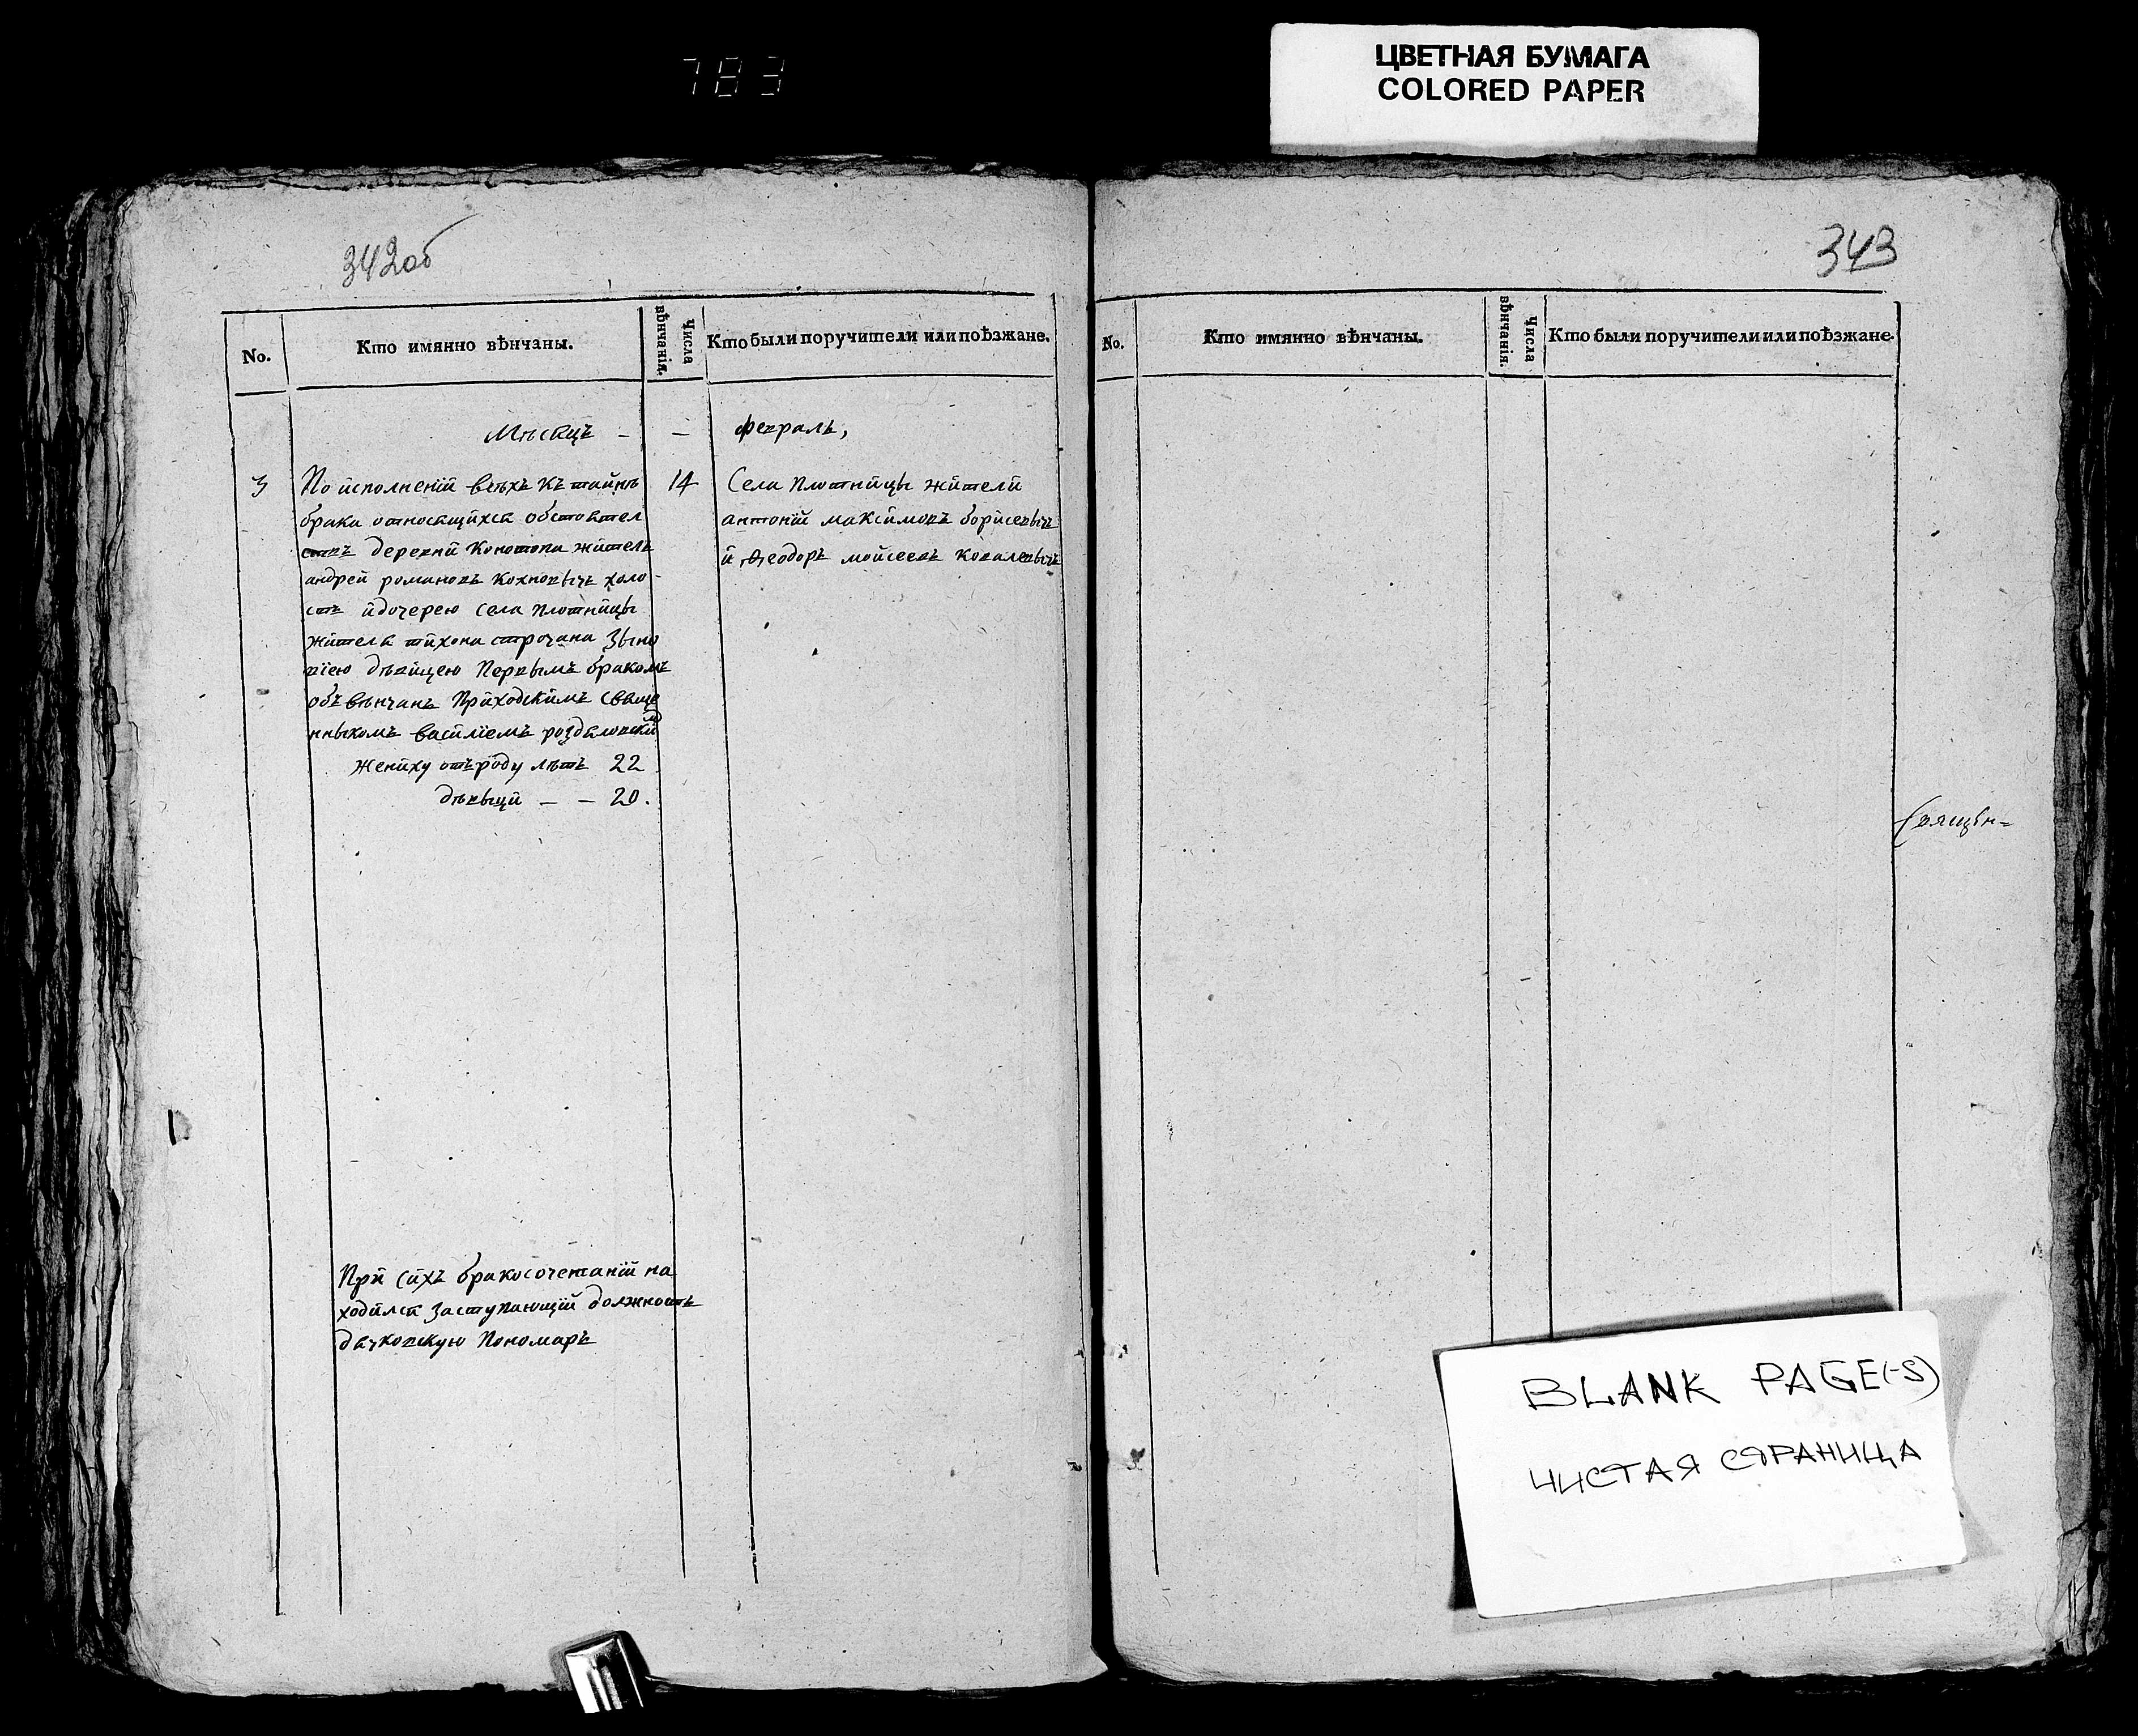 783
ЦВЕТНАЯ БУМАГА
COLORED PAPER
342об
No.
Кто имянно вѣнчаны.
Числа вѣнчанія.
Кто были поручители или поѣзжане.
Мѣсяцъ - - февраль,
3
По исполненіи всѣхъ къ тайнѣ
брака относящихся обстоятел
ствъ деревни Конотопа житель
андрей романовъ Кохновычъ холо-
стъ й дочерею села Плотницы
жителя тихона строчана Зыно
віею дѣвицею Первымъ бракомъ
объвѣнчанъ Приходскимъ Свяще
нныкомъ василіемъ роздяловским
жениху отъ роду лѣтъ 22
дѣвыци — — 20.
14
Села Плотницы жители
антоній максимовъ борисевычъ
й Ѳеодоръ мойсеевъ ковалевычъ
При сихъ бракосочетаній на
ходился заступающій должность
дячковскую Пономаръ
343
No.
Кто имянно вѣнчаны.
Числа вѣнчанія.
Кто были поручители или поѣзжане.
Свящын=
BLANK PAGE(-S)
ЧИСТАЯ СТРАНИЦА